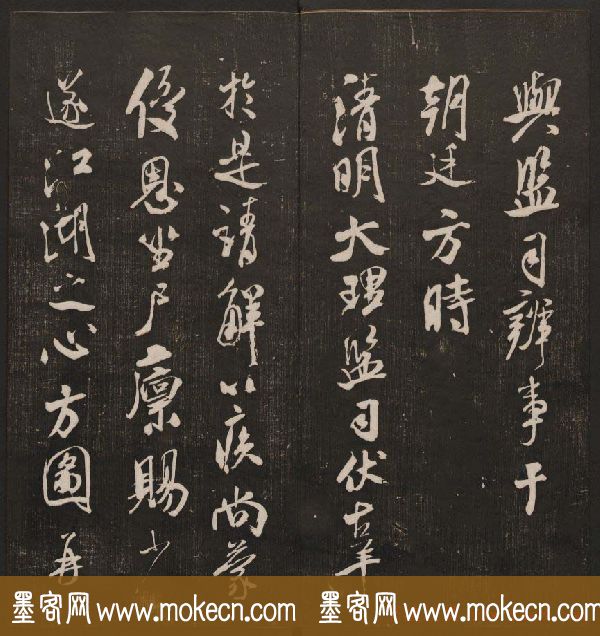 與監司辨事于
朝廷方時
清明大理監司伏辜
於是請解以疾尚蒙
優恩坐尸廩賜少
遂江湖之心方圖再
墨客网 www.mokecn.com 墨客网 www.mokecn.com